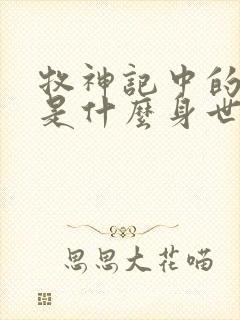 牧神記中的
是什麼身世
思思大花喵